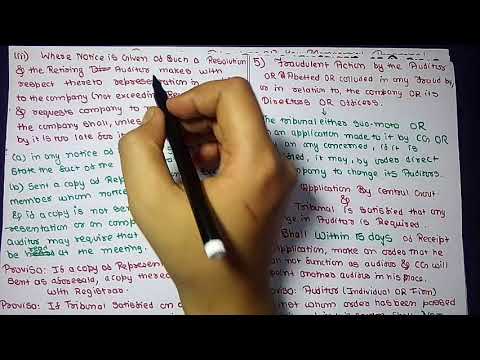 (iii) Where Notice is Given of Such a Resolution
& the Retiring Auditor makes with
respect thereto representation in
to the company (not exceeding Re
& requests company to n
the company shall, unles
by it is too late for i
(a) in any notice o
state the fact of the
(b) Send a copy of Rep
member whom notice
& if a copy is not sen
resentation or an comp
auditor may require that
be read at the meeting.
Proviso: If a copy of Represen
sent as aforesaid, a copy thereo
with Registrar.
Proviso: If Tribunal satisfied on a
5) Fraudulent Action by the Auditor
OR Abetted OR colluded in any fraud by,
or in relation to the company OR its
Directors OR officers.
↓
The Tribunal either suo-moto OR
an application made to it by CG OR
on any concerned, if it is
fied, it may, by order direct
company to change its Auditors.
Application By Central Govt.
&
Tribunal is Satisfied that any
ge in Auditor is Required.
Shall Within 15 days of Receipt
application, make an order that he
not function as auditor & CG can
point another auditor in his place.
viso: Auditor (Individual OR Firm)
nst whom order has been passed